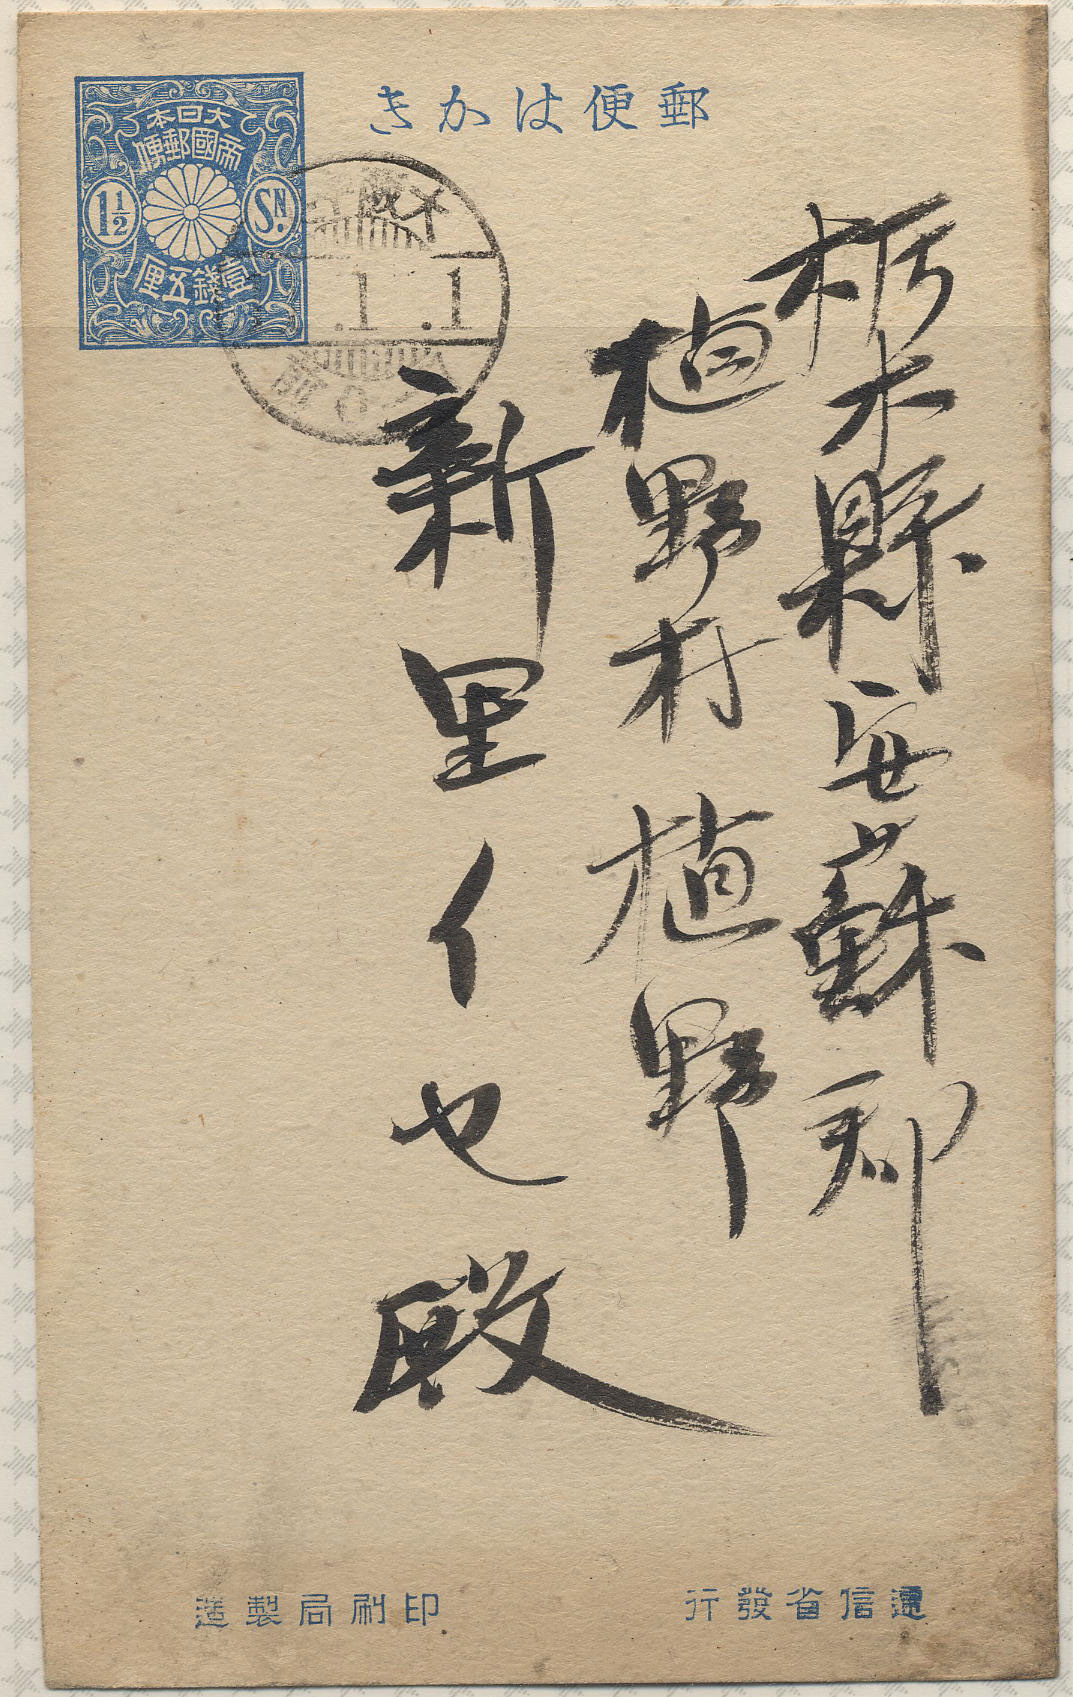 郵便はかき
大日本
帝國郵便
1½ SN.
壹錢五厘
.1 .1
前0
栃木縣安蘇郡
植野村植野
新里イセ殿
遞信省發行
印刷局製造